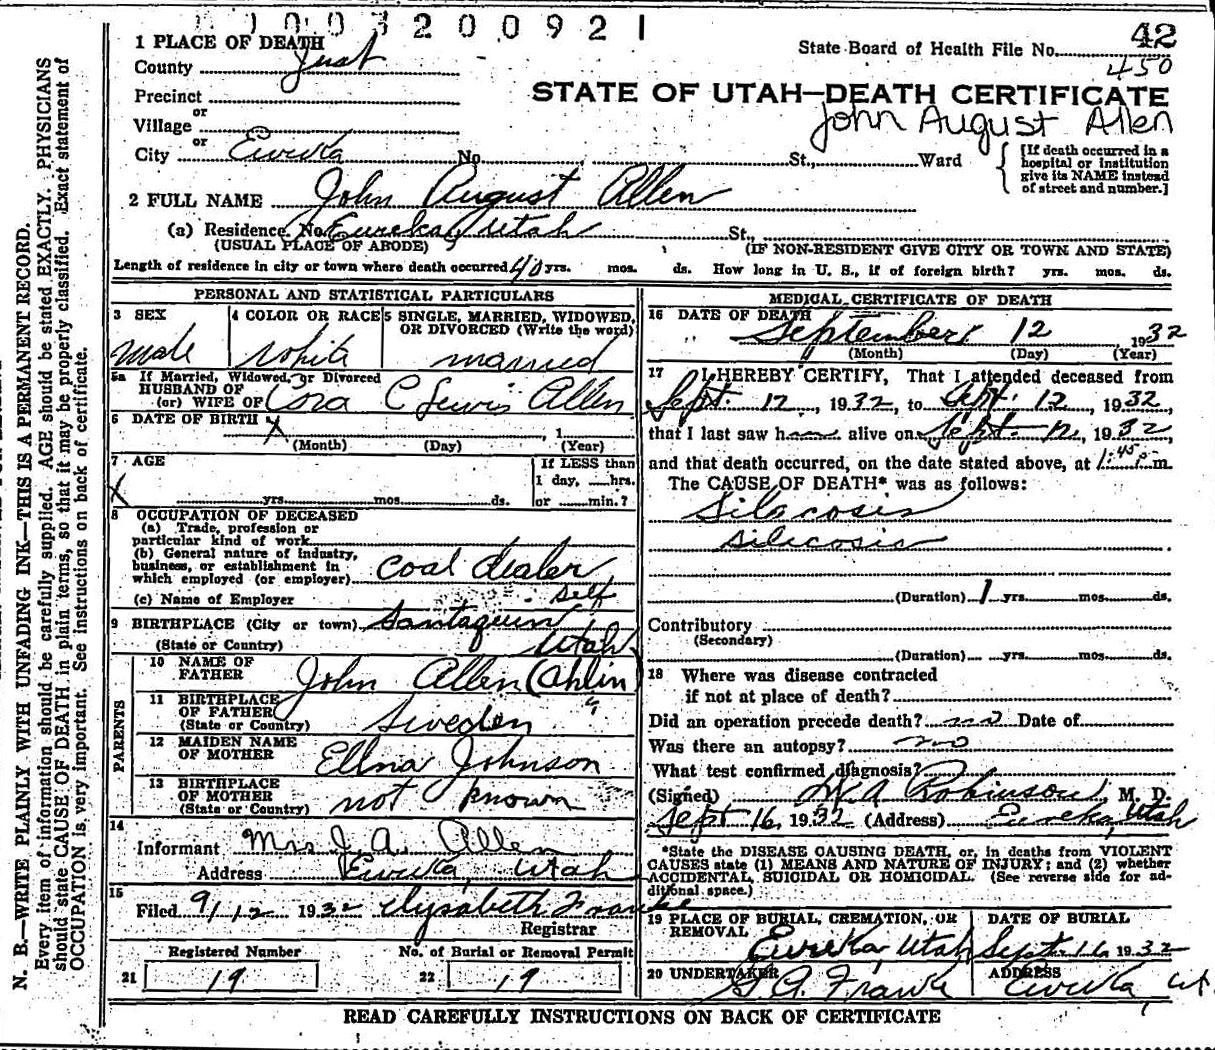 1003200921
1 PLACE OF DEATH
State Board of Health File No. 42
County Juab
450
Precinct
STATE OF UTAH—DEATH CERTIFICATE
or
Village
John August Allen
or
City Eureka No. St., Ward
[If death occurred in a
hospital or institution
give its NAME instead
of street and number.]
2 FULL NAME John August Allen
(a) Residence. No. Eureka, Utah St.,
(USUAL PLACE OF ABODE) (IF NON-RESIDENT GIVE CITY OR TOWN AND STATE)
Length of residence in city or town where death occurred 40 yrs. mos. ds. How long in U. S., if of foreign birth? yrs. mos. ds.
PERSONAL AND STATISTICAL PARTICULARS
3 SEX
male
4 COLOR OR RACE
white
5 SINGLE, MARRIED, WIDOWED,
OR DIVORCED (Write the word)
married
5a If Married, Widowed, or Divorced
HUSBAND OF
(or) WIFE OF Cora C Lewis Allen
6 DATE OF BIRTH x , 1
(Month) (Day) (Year)
7 AGE
x
yrs. mos. ds.
If LESS than
1 day, hrs.
or min.?
8 OCCUPATION OF DECEASED
(a) Trade, profession or
particular kind of work
(b) General nature of industry,
business, or establishment in
which employed (or employer) coal dealer
(c) Name of Employer self
9 BIRTHPLACE (City or town) Santaquin
(State or Country) Utah
PARENTS
10 NAME OF
FATHER John Allen (Ahlin)
11 BIRTHPLACE
OF FATHER
(State or Country) Sweden
12 MAIDEN NAME
OF MOTHER Ellna Johnson
13 BIRTHPLACE
OF MOTHER
(State or Country) not known
14
Informant Mrs J. A. Allen
Address Eureka, Utah
15
Filed 9/12 1932 Elysabeth Franke
Registrar
Registered Number
21 19
No. of Burial or Removal Permit
22 19
MEDICAL CERTIFICATE OF DEATH
16 DATE OF DEATH
September 12, 1932
(Month) (Day) (Year)
17 I HEREBY CERTIFY, That I attended deceased from
Sept. 12, 1932, to Sept. 12, 1932,
that I last saw h alive on Sept. 12, 1932,
and that death occurred, on the date stated above, at 1:45 p m.
The CAUSE OF DEATH* was as follows:
Silacosis
silicosis
(Duration) 1 yrs. mos. ds.
Contributory
(Secondary)
(Duration) yrs. mos. ds.
18 Where was disease contracted
if not at place of death?
Did an operation precede death? no Date of
Was there an autopsy? no
What test confirmed diagnosis?
(Signed) W. A Robinson, M. D.
Sept 16, 1932 (Address) Eureka, Utah
*State the DISEASE CAUSING DEATH, or, in deaths from VIOLENT
CAUSES state (1) MEANS AND NATURE OF INJURY; and (2) whether
ACCIDENTAL, SUICIDAL OR HOMICIDAL. (See reverse side for ad-
ditional space.)
19 PLACE OF BURIAL, CREMATION, OR
REMOVAL
Eureka, Utah
DATE OF BURIAL
Sept. 16 1932
20 UNDERTAKER
S. A. Franke
ADDRESS
Eureka, Ut.
READ CAREFULLY INSTRUCTIONS ON BACK OF CERTIFICATE
N. B.—WRITE PLAINLY WITH UNFADING INK—THIS IS A PERMANENT RECORD.
Every item of information should be carefully supplied. AGE should be stated EXACTLY. PHYSICIANS
should state CAUSE OF DEATH in plain terms, so that it may be properly classified. Exact statement of
OCCUPATION is very important. See instructions on back of certificate.